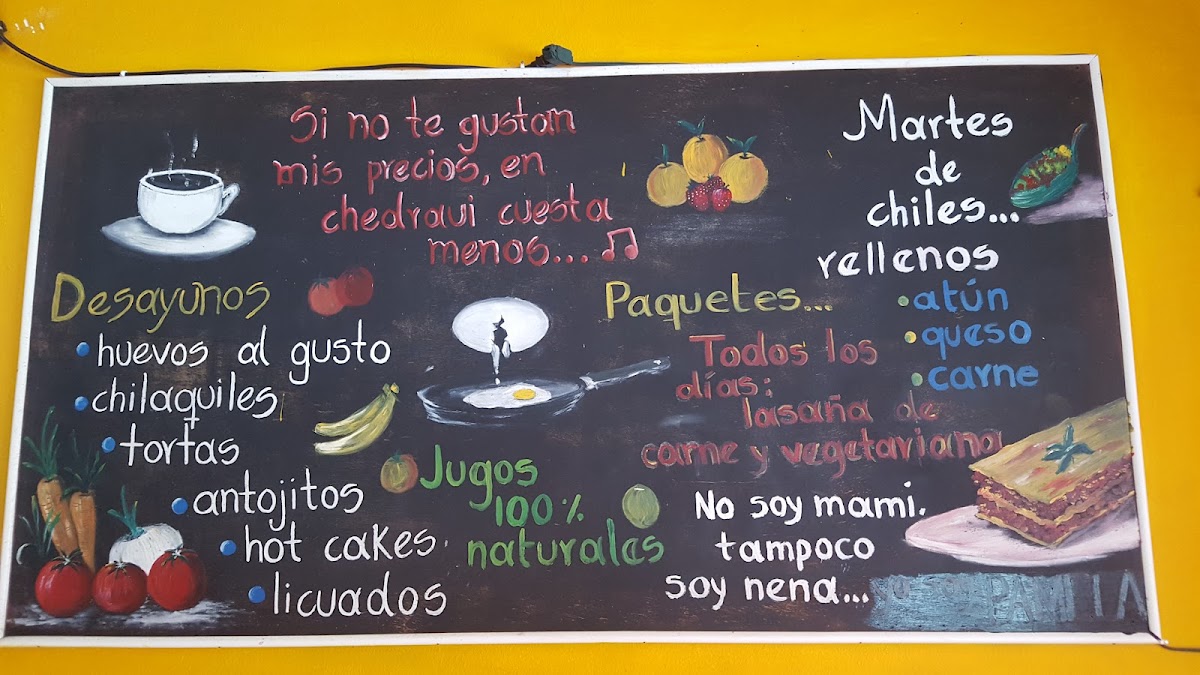 Si no te gustan
mis precios, en
chedraui cuesta
menos...
Desayunos
huevos al gusto
chilaquiles
tortas
antojitos
hot cakes
licuados
Jugos
100%
naturales
Paquetes...
Todos los
días:
lasaña de
carne y vegetariana
Martes
de
chiles...
rellenos
atún
queso
carne
No soy mami.
tampoco
soy nena...